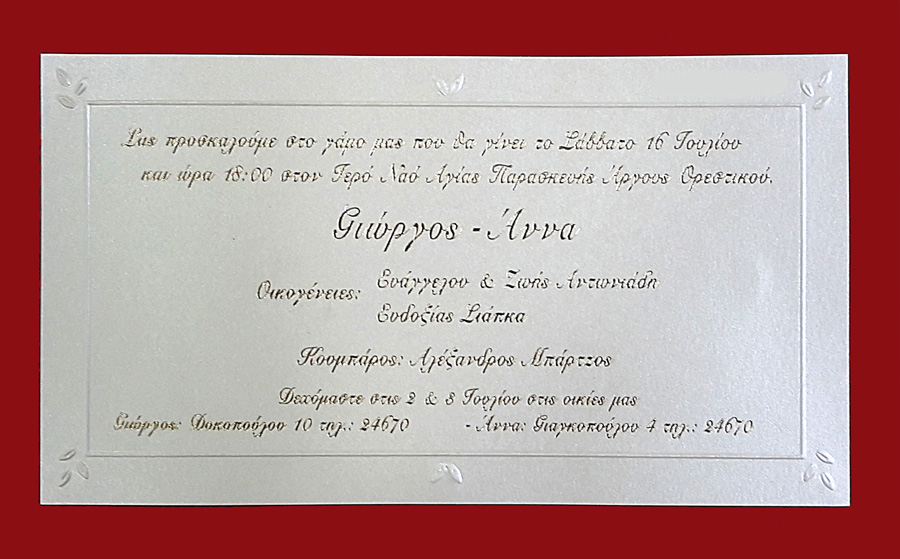 Σας προσκαλούμε στο γάμο μας που θα γίνει το Σάββατο 16 Ιουλίου
και ώρα 18:00 στον Ιερό Ναό Αγίας Παρασκευής Άργους Ορεστικού.
Γιώργος - Άννα
Οικογένειες: Ευάγγελου & Ζωής Αντωνιάδη
Ευδοξίας Σιάπκα
Κουμπάρος: Αλέξανδρος Μπάρτζος
Δεχόμαστε στις 2 & 3 Ιουλίου στις οικίες μας
Γιώργος: Δοκοπούλου 10 τηλ.: 24670 - Άννα: Γιαγκοπούλου 4 τηλ.: 24670